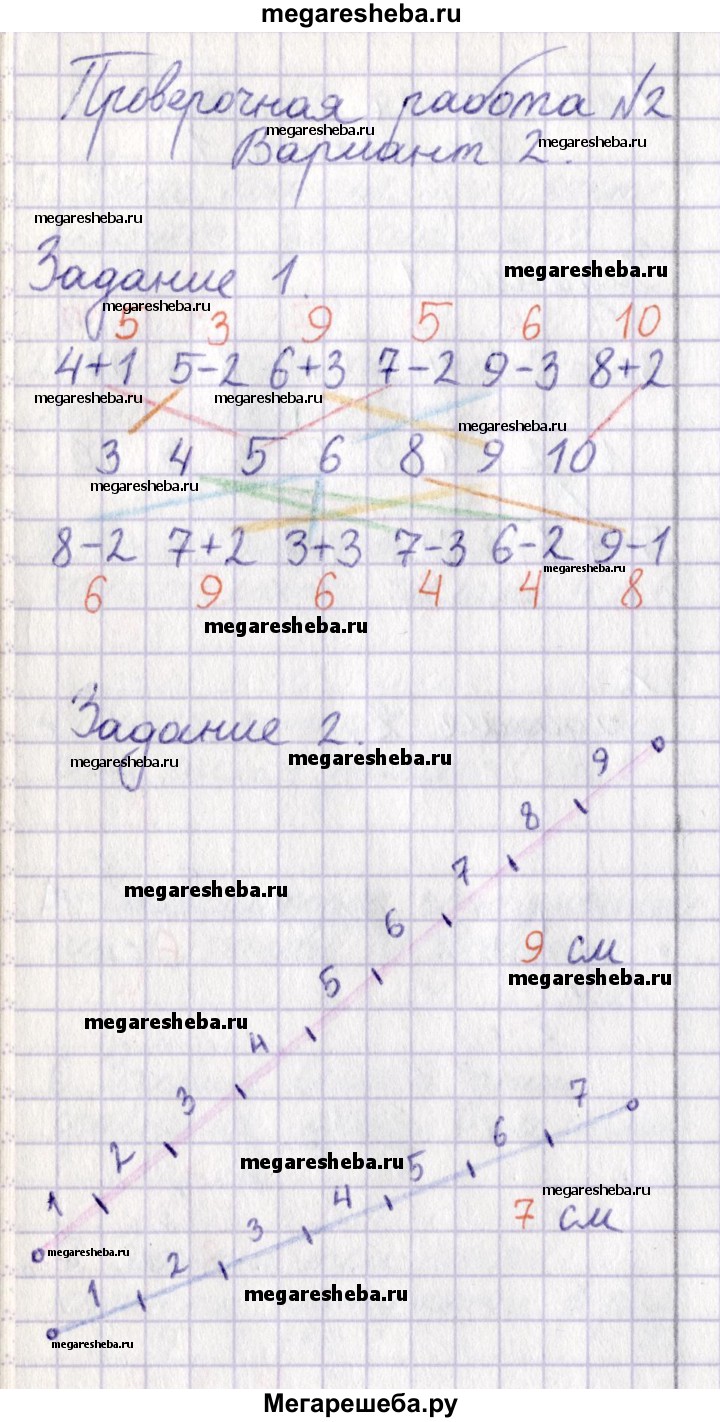 megaresheba.ru
Проверочная работа №2
megaresheba.ru
Вариант 2.
megaresheba.ru
megaresheba.ru
Задание 1.
megaresheba.ru
megaresheba.ru
5 3 9 5 6 10
4+1 5-2 6+3 7-2 9-3 8+2
megaresheba.ru megaresheba.ru
megaresheba.ru
3 4 5 6 8 9 10
megaresheba.ru
8-2 7+2 3+3 7-3 6-2 9-1
megaresheba.ru
6 9 6 4 4 8
megaresheba.ru
Задание 2.
megaresheba.ru megaresheba.ru
9
8
7
megaresheba.ru
6
9 см
5 megaresheba.ru
megaresheba.ru
4
3
2
1
megaresheba.ru
7
6
megaresheba.ru
5
megaresheba.ru
4
7 см
3
megaresheba.ru
2
1
megaresheba.ru
megaresheba.ru
Мегарешеба.ру